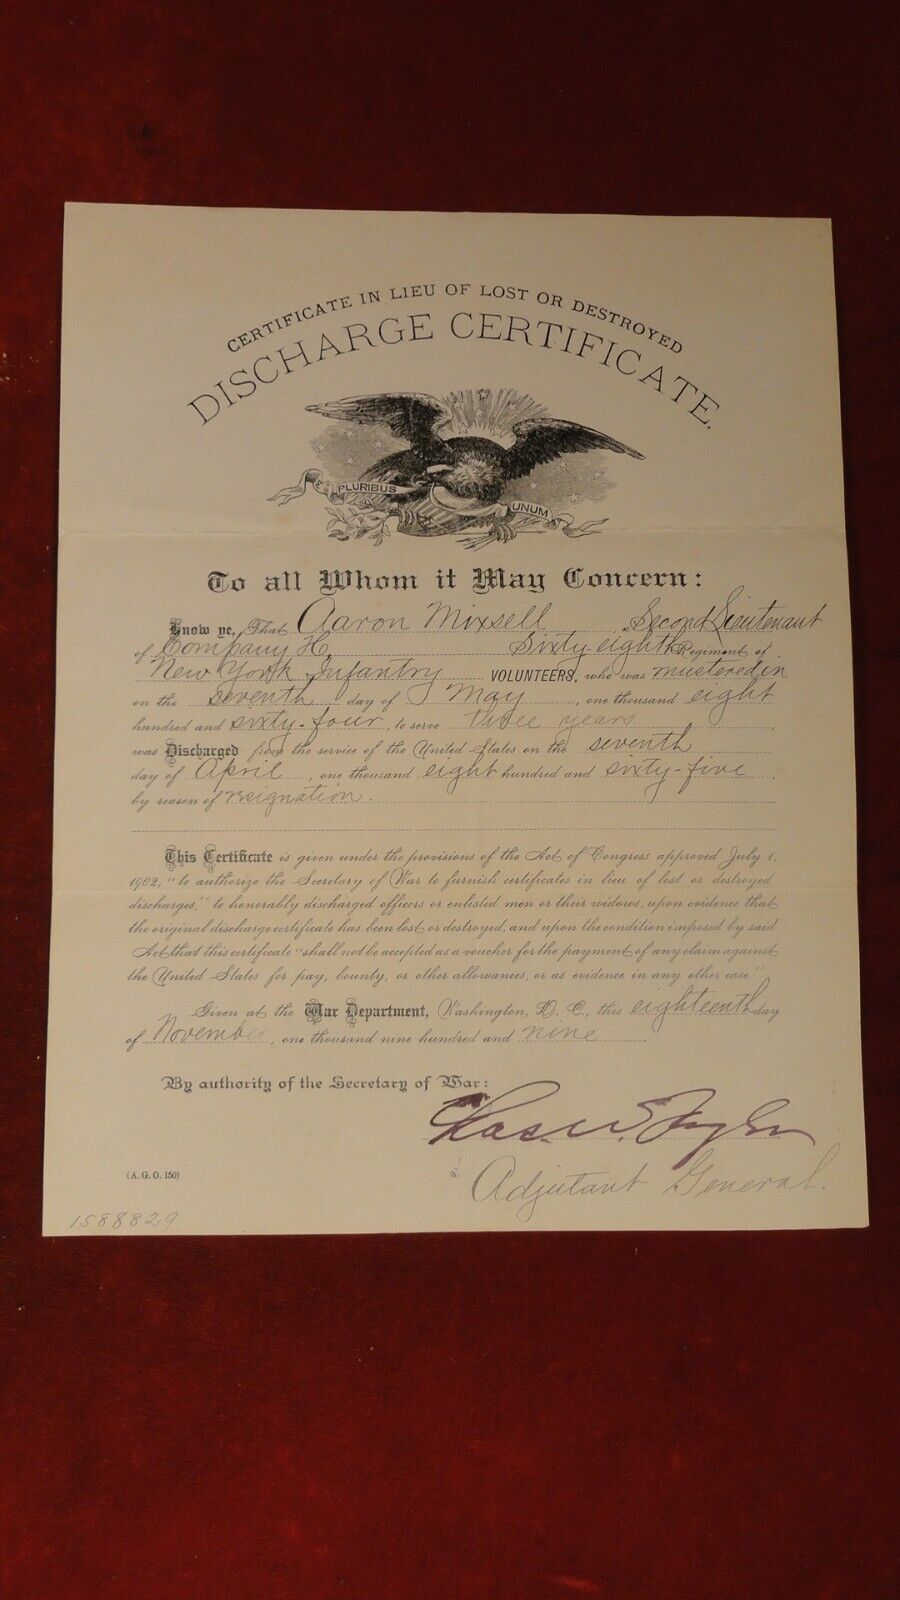 CERTIFICATE IN LIEU OF LOST OR DESTROYED
DISCHARGE CERTIFICATE.
E PLURIBUS UNUM
To all Whom it May Concern:
Know ye, That Aaron Mixsell Second Lieutenant
of Company H, Sixty-eighth Regiment of
New York Infantry VOLUNTEERS, who was mustered in
on the seventh day of May, one thousand eight
hundred and sixty-four, to serve three years
was Discharged from the service of the United States on the seventh
day of April, one thousand eight hundred and sixty-five
by reason of resignation.
This Certificate is given under the provisions of the Act of Congress approved July 1,
1902, "to authorize the Secretary of War to furnish certificates in lieu of lost or destroyed
discharges," to honorably discharged officers or enlisted men or their widows, upon evidence that
the original discharge certificate has been lost or destroyed, and upon the condition imposed by said
Act that this certificate "shall not be accepted as a voucher for the payment of any claim against
the United States for pay, bounty, or other allowances, or as evidence in any other case."
Given at the War Department, Washington, D. C., this eighteenth day
of November, one thousand nine hundred and nine
By authority of the Secretary of War:
(A. G. O. 150)
Adjutant General.
1588829